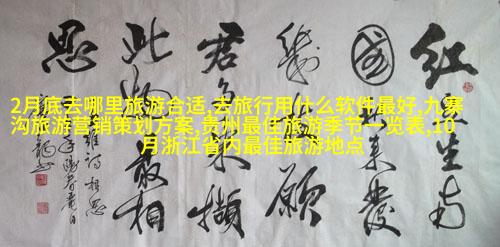 2月底去哪里旅游合适,去旅行用什么软件最好,九寨
沟旅游营销策划方案,贵州最佳旅游季节一览表,10
月浙江省内最佳旅游地点
红豆生南
國春来發
幾枝願
君多采撷
此物最相
思
維詩相思